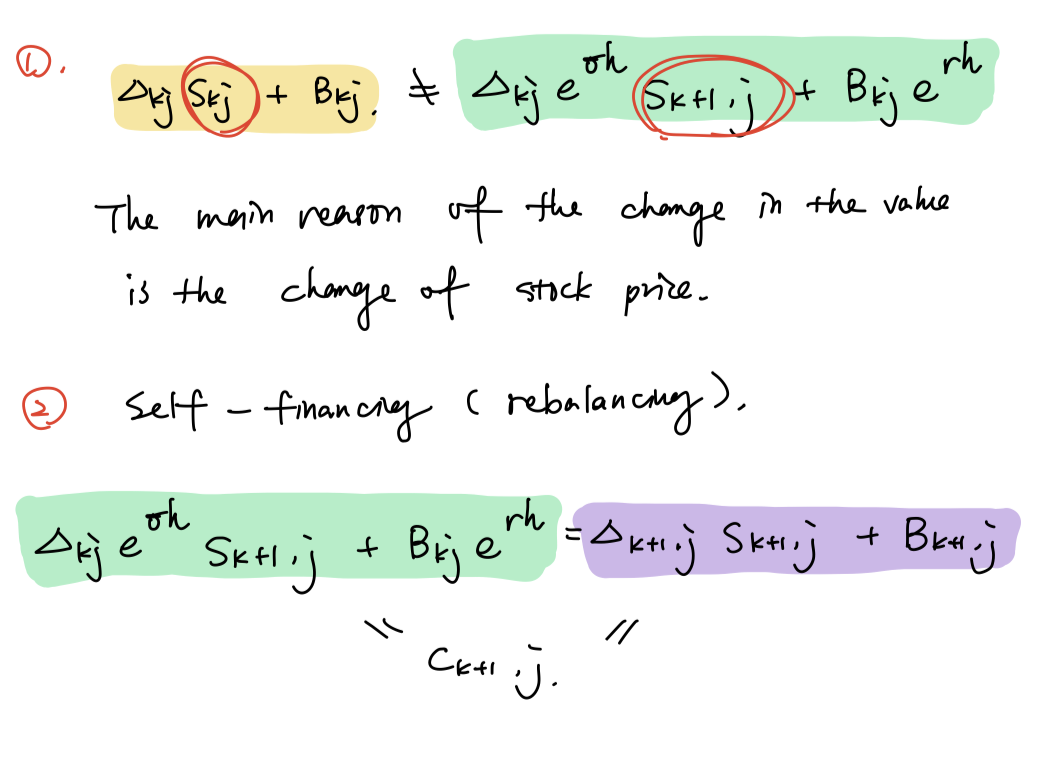 ①. Δkj Skj + Bkj. ≠ Δkj e^σh Sk+1,j + Bkj e^rh
The main reason of the change in the value
is the change of stock price.
② Self-financing (rebalancing).
Δkj e^σh Sk+1,j + Bkj e^rh = Δk+1,j Sk+1,j + Bk+1,j
\\ Ck+1,j. //